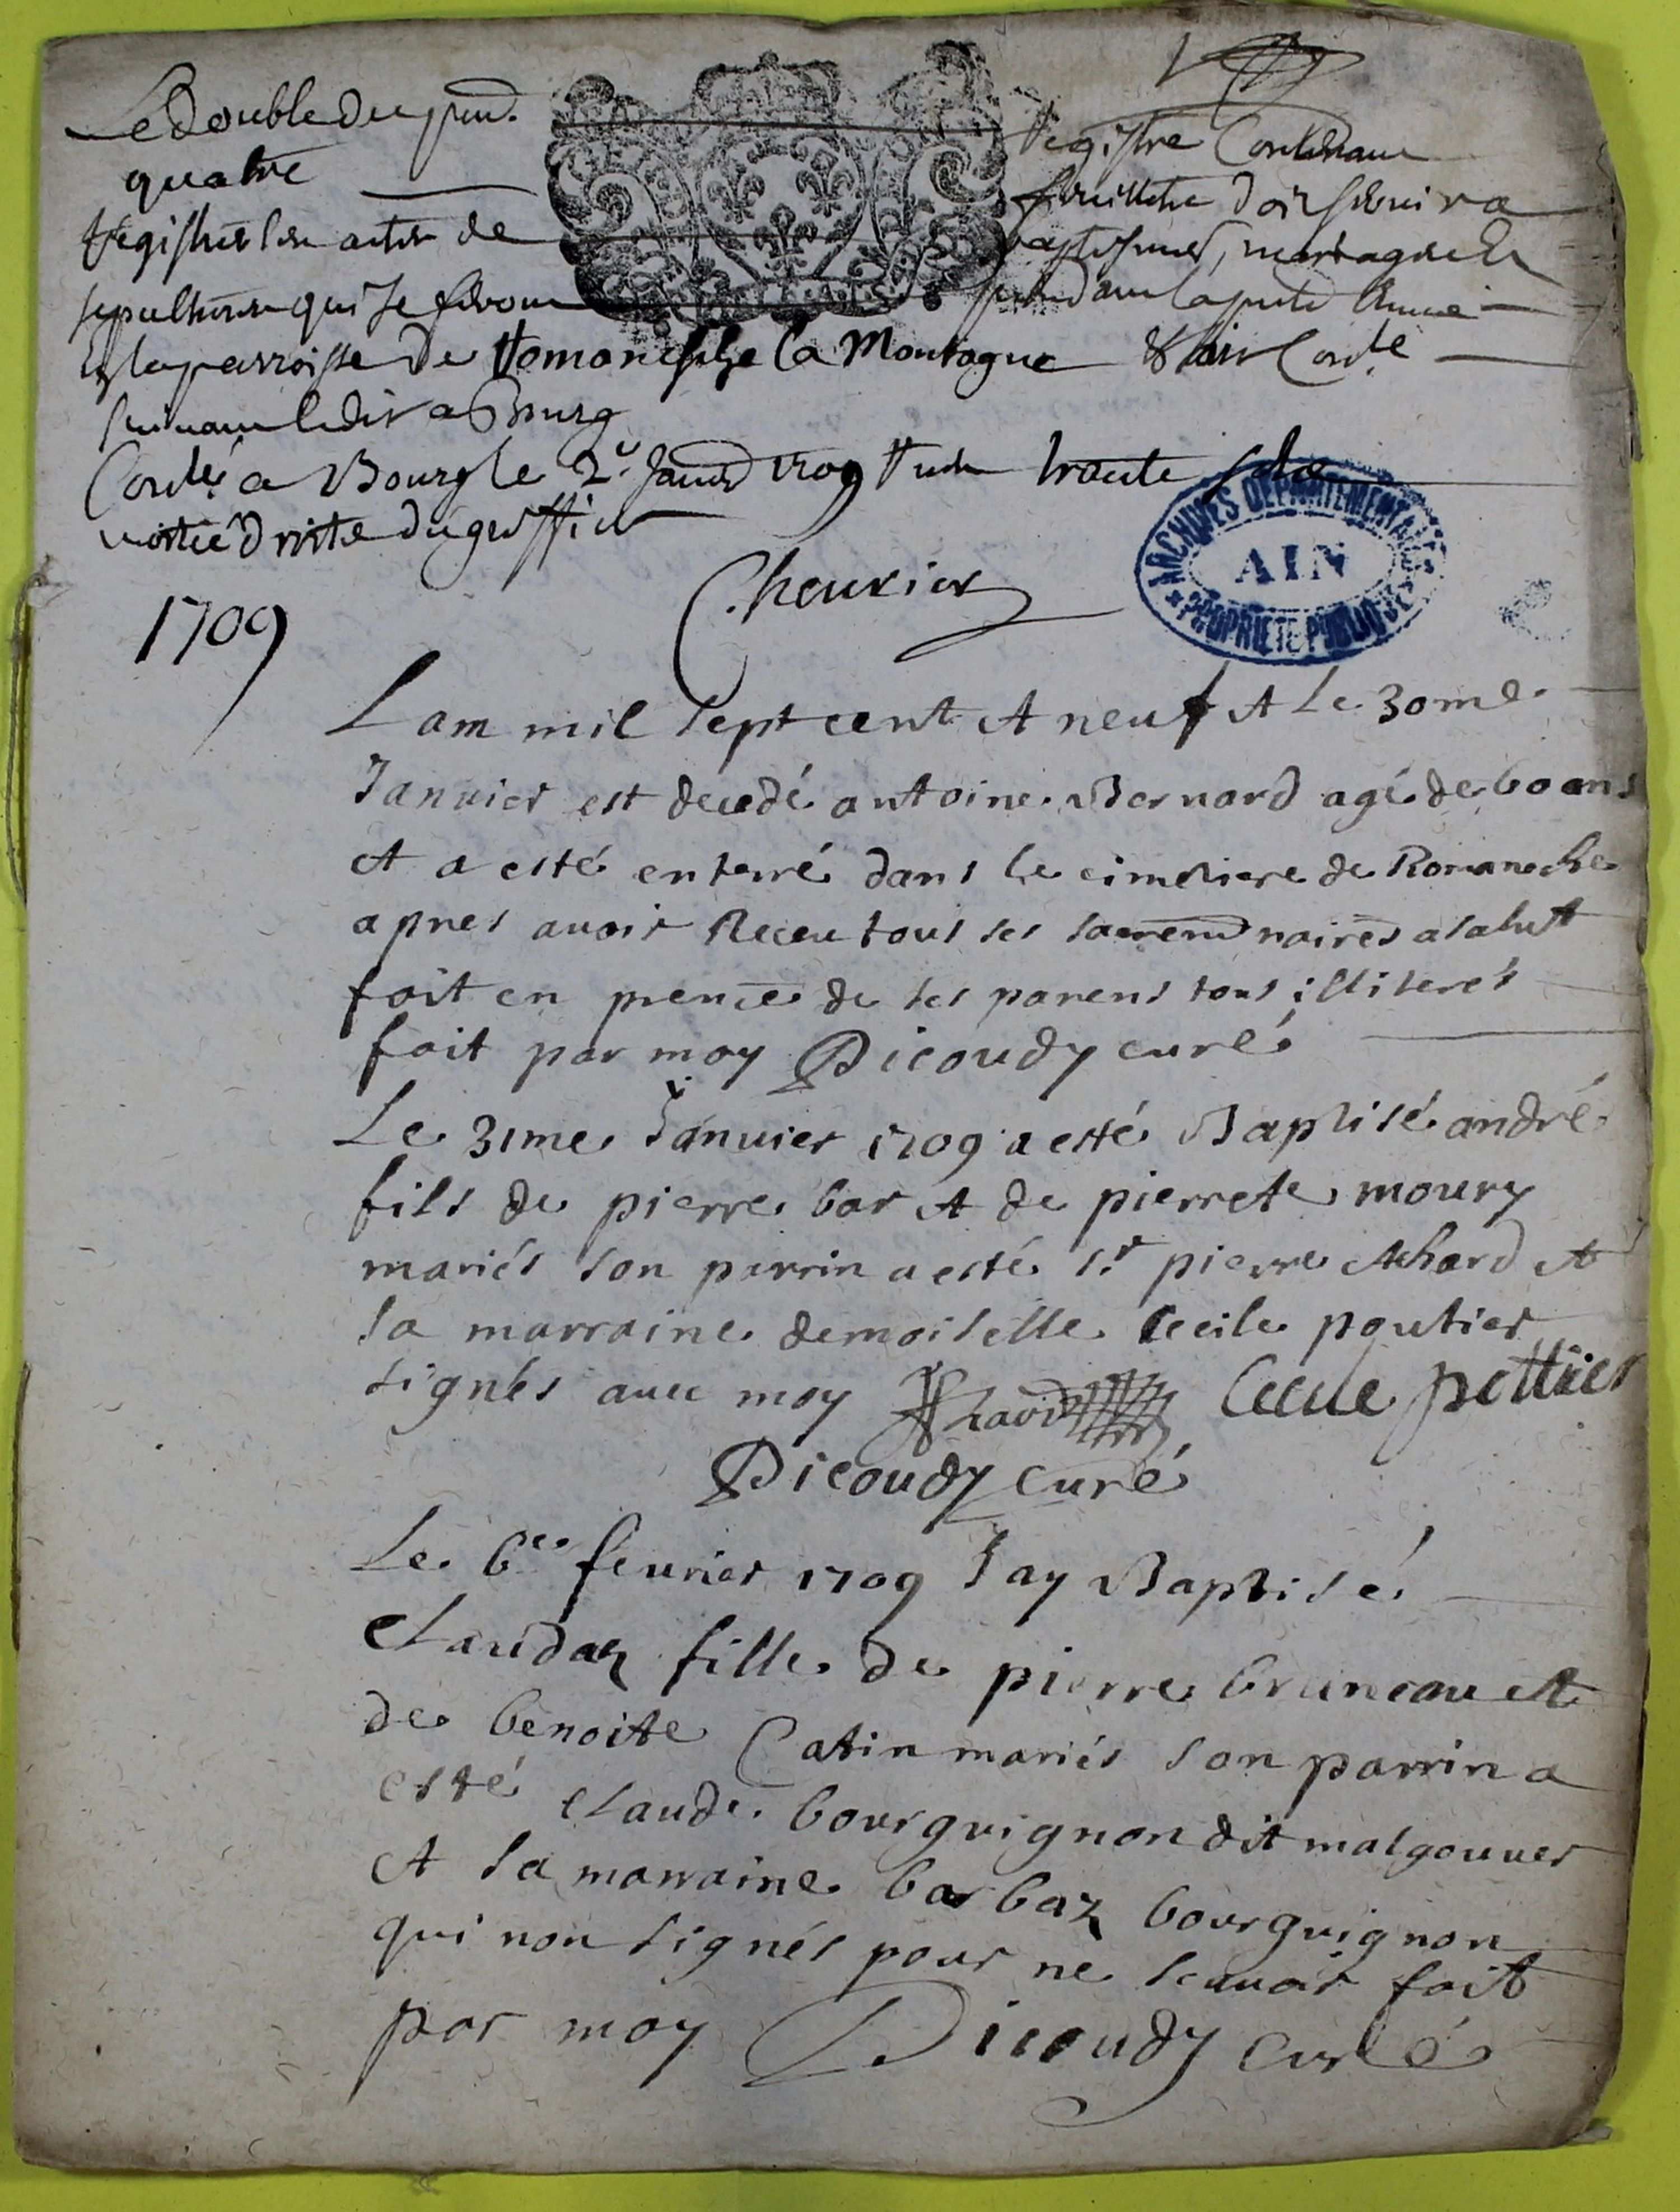 Le double du pnt. Registre Contenant
quatre feuillets doit servir a
Registrer les actes de baptesmes, mariages et
sepultures qui se feront pendant la pnte Année
En la parroisse de Romanesche la Montagne Et a été Cotté
suivant ledit a Bourg
Cotté a Bourg le 2e Janvr 1709 Receu trante sols
moitié droits du greffier
Cheurier
ARCHIVES DÉPARTEMENTALES
AIN
PROPRIÉTÉ PUBLIQUE
1709
Lam mil sept cent et neuf et le 30me
Januier est decedé antoine Bernard agé de 60 ans
et a esté enterré dans le cimetiere de Romaneche
apres auoir Receu tous ses sacrem naires a salut
fait en prence de ses parens tous illiterés
fait par moy Dicoudy curé
Le 31me Januier 1709 a esté Baptisé andré
fils de pierre bar et de pierrete moury
mariés son parrin a esté sr pierre Achard et
sa marraine demoiselle Cecile poutier
signés auec moy Cecile pottier
Dicoudy curé
Le 6ee feurier 1709 Jay Baptisé
Claudaz fille de pierre bruneau et
de benoite Catin mariés son parrin a
esté claude bourguignon dit malgouuer
et sa marraine barbaz bourguignon
qui non signés pour ne scauoir fait
par moy Dicoudy Curé